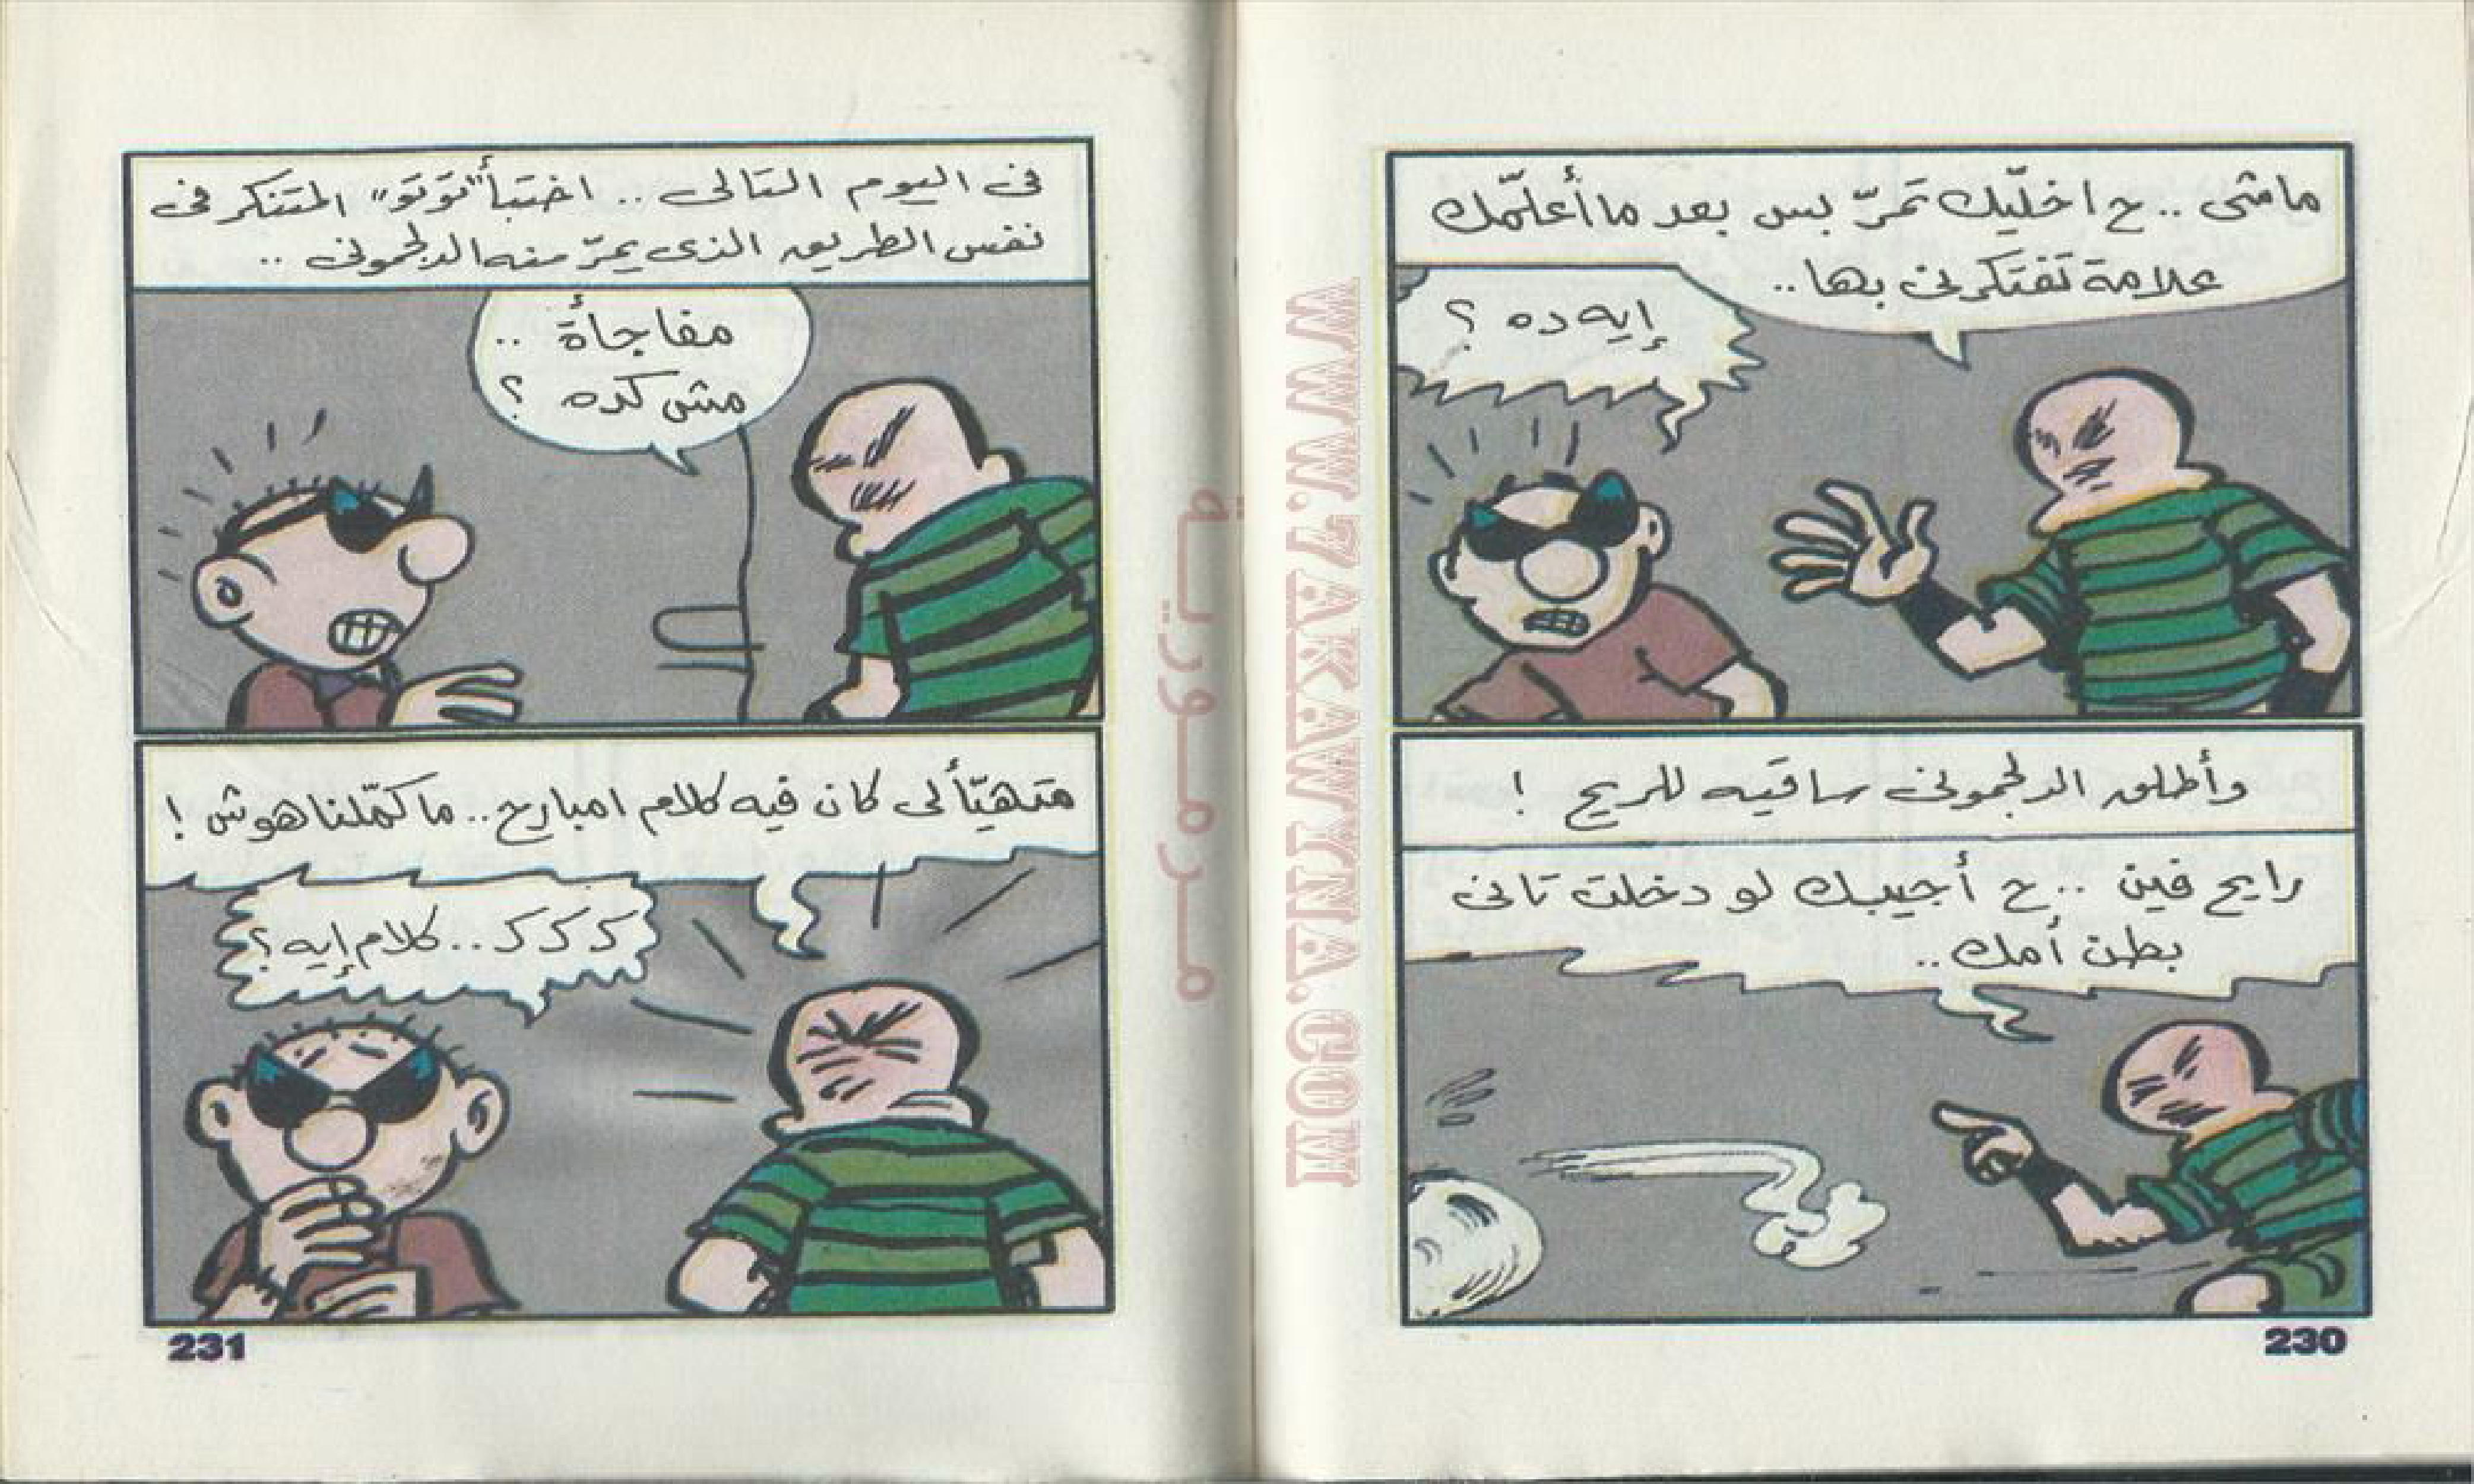 ماشى .. ح اخلّيك تمرّ بس بعد ما أعلّمك
علامة تفتكرنى بها ..
إيه ده ؟
وأطلق الدلجمونى ساقيه للريح !
رايح فين .. ح أجيبك لو دخلت تانى
بطن أمك ..
230
فى اليوم التالى .. اختبأ "توتو" المتنكر فى
نفس الطريق الذى يمرّ منه الدلجمونى ..
مفاجأة ..
مش كده ؟
متهيّألى كان فيه كلام امبارح .. ما كمّلناهوش !
ك ك ك .. كلام إيه ؟
231
مرمورية
WWW.7AKAWINA.COM